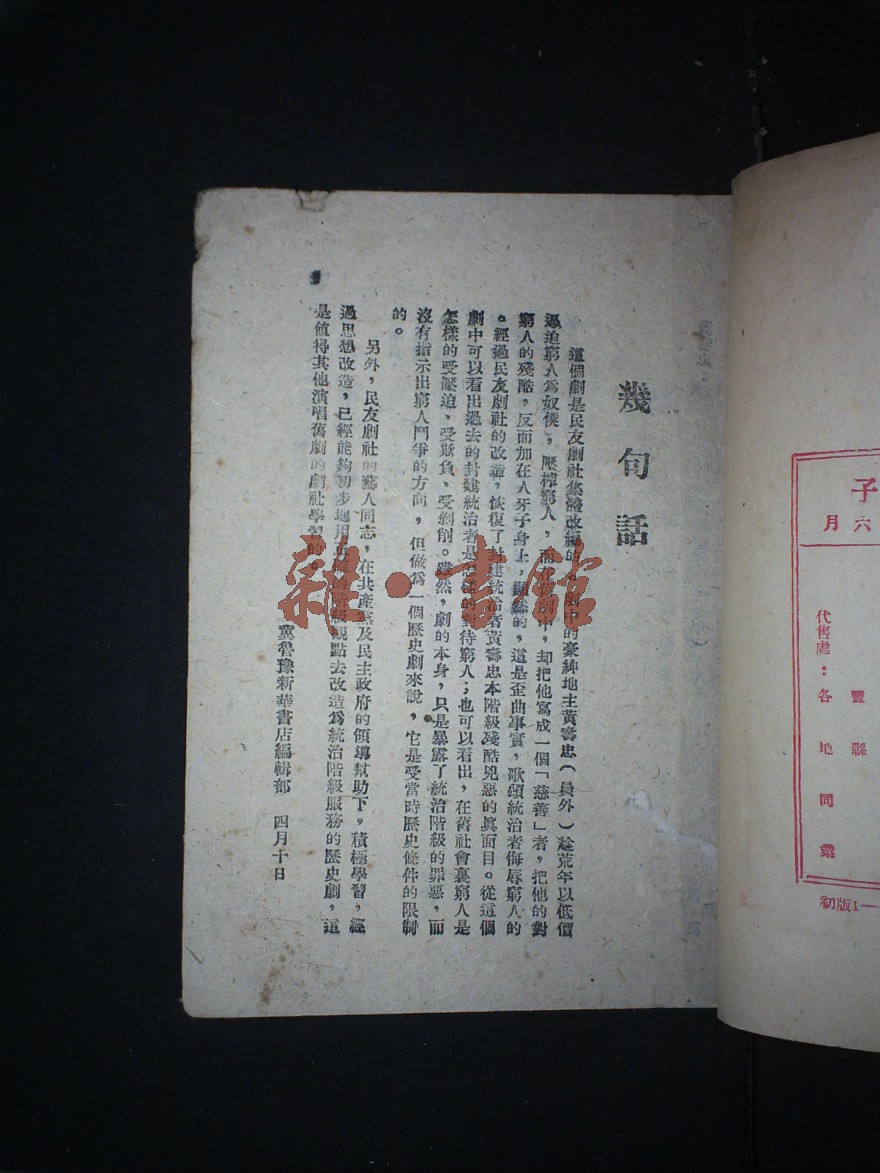 幾句話
這個劇是民友劇社集體改編的,劇中的豪紳地主黃壽忠(員外)趁荒年以低價
逼迫窮人為奴僕,壓榨窮人,而在舊劇中,却把他寫成一個「慈善」者,把他的對
窮人的殘酷,反而加在人牙子身上,顯然的,這是歪曲事實,歌頌統治者侮辱窮人的
。經過民友劇社的改造,恢復了封建統治者黃壽忠本階級殘酷兇惡的真面目。從這個
劇中可以看出過去的封建統治者是怎樣的對待窮人;也可以看出,在舊社會裏窮人是
怎樣的受壓迫、受欺負、受剝削。雖然,劇的本身,只是暴露了統治階級的罪惡,而
沒有指示出窮人鬥爭的方向,但做為一個歷史劇來說,它是受當時歷史條件的限制
的。
另外,民友劇社的藝人同志,在共產黨及民主政府的領導幫助下,積極學習,經
過思想改造,已經能夠初步地用的階級觀點去改造為統治階級服務的歷史劇,這
是值得其他演唱舊劇的劇社學習的。
冀魯豫新華書店編輯部 四月十日
子
六月
豐縣
代售處:各地同業
初版1—
雜·書館